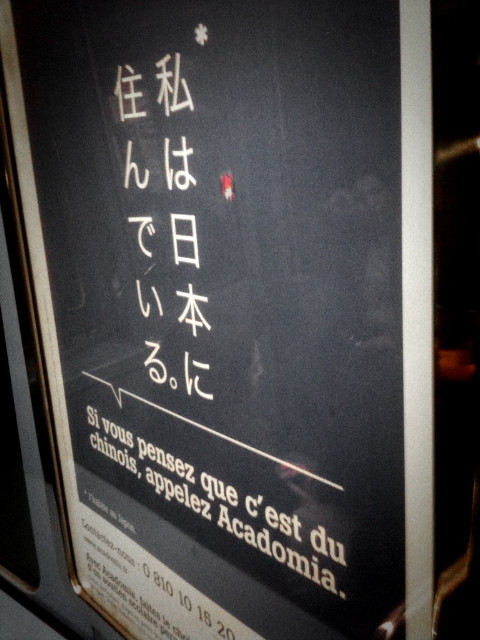 *
私は日本に
住んでいる。
Si vous pensez que c'est du
chinois, appelez Acadomia.
* J'habite au Japon.
Contactez-nous : 0 810 10 15 20
www.acadomia.fr
Avec Acadomia, faites le